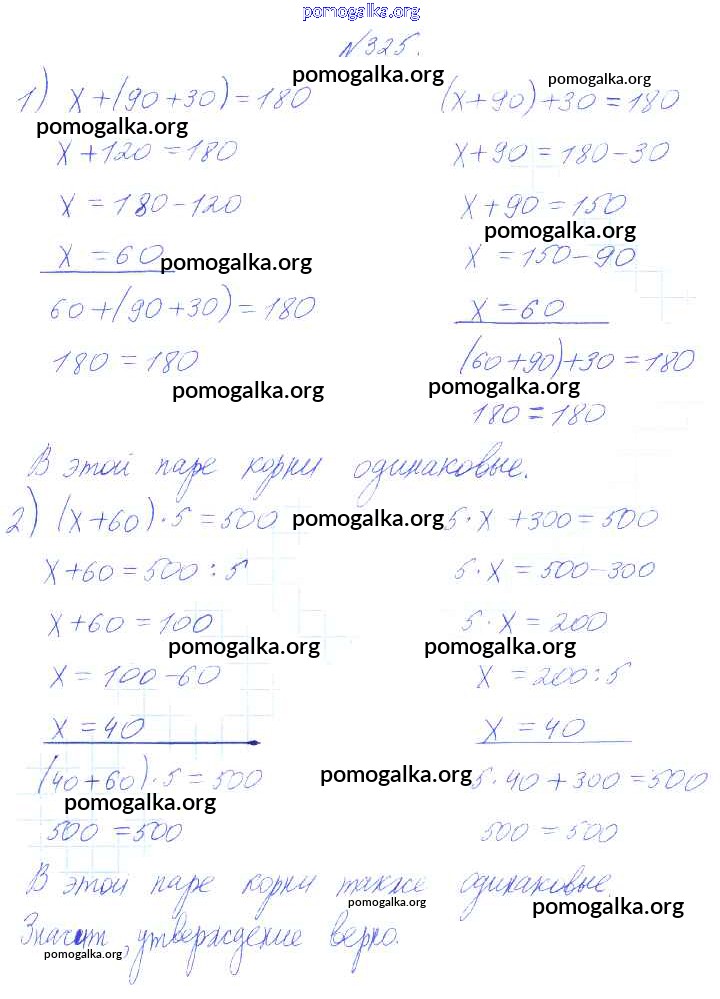 pomogalka.org
№325.
pomogalka.org pomogalka.org
1) x+(90+30)=180 (x+90)+30=180
pomogalka.org
x+120=180 x+90=180-30
x=180-120 x+90=150
pomogalka.org
x=60 x=150-90
pomogalka.org
60+(90+30)=180 x=60
180=180 (60+90)+30=180
pomogalka.org pomogalka.org
180=180
В этой паре корни одинаковые.
2) (x+60)·5=500 pomogalka.org 5·x+300=500
x+60=500:5 5·x=500-300
x+60=100 5·x=200
pomogalka.org pomogalka.org
x=100-60 x=200:5
x=40 x=40
(40+60)·5=500 pomogalka.org 5·40+300=500
pomogalka.org
500=500 500=500
В этой паре корни также одинаковые.
pomogalka.org pomogalka.org
Значит, утверждение верно.
pomogalka.org
pomogalka.org